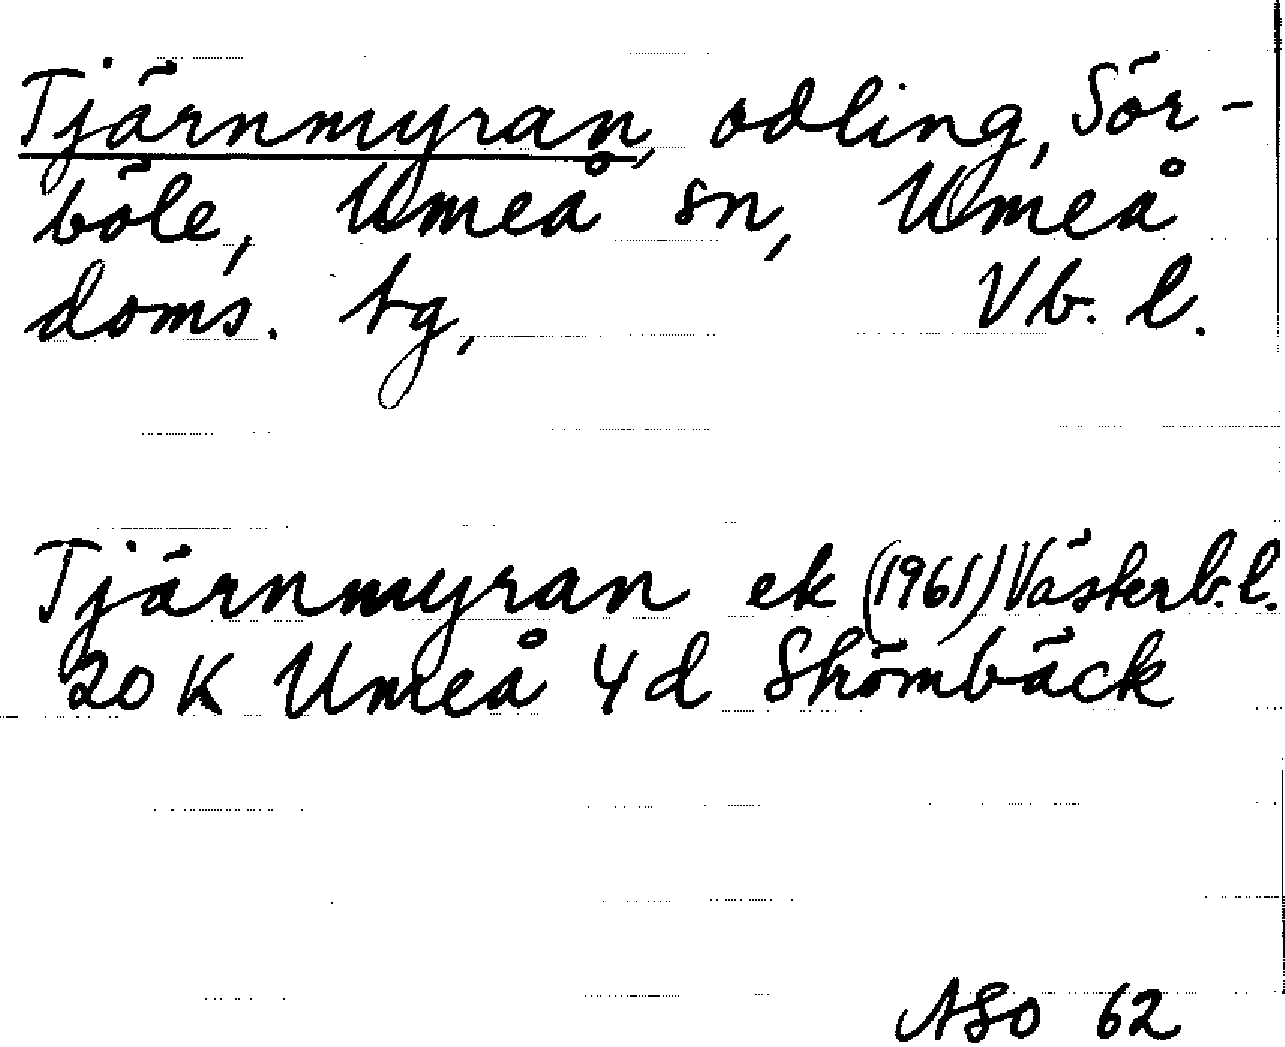 Tjärnmyran, odling, Sör-
böle, Umeå sn, Umeå
doms. tg, Vb. l.
Tjärnmyran ek (1961) Västerb. l.
20 K Umeå 4 d Skömbäck
ASO 62